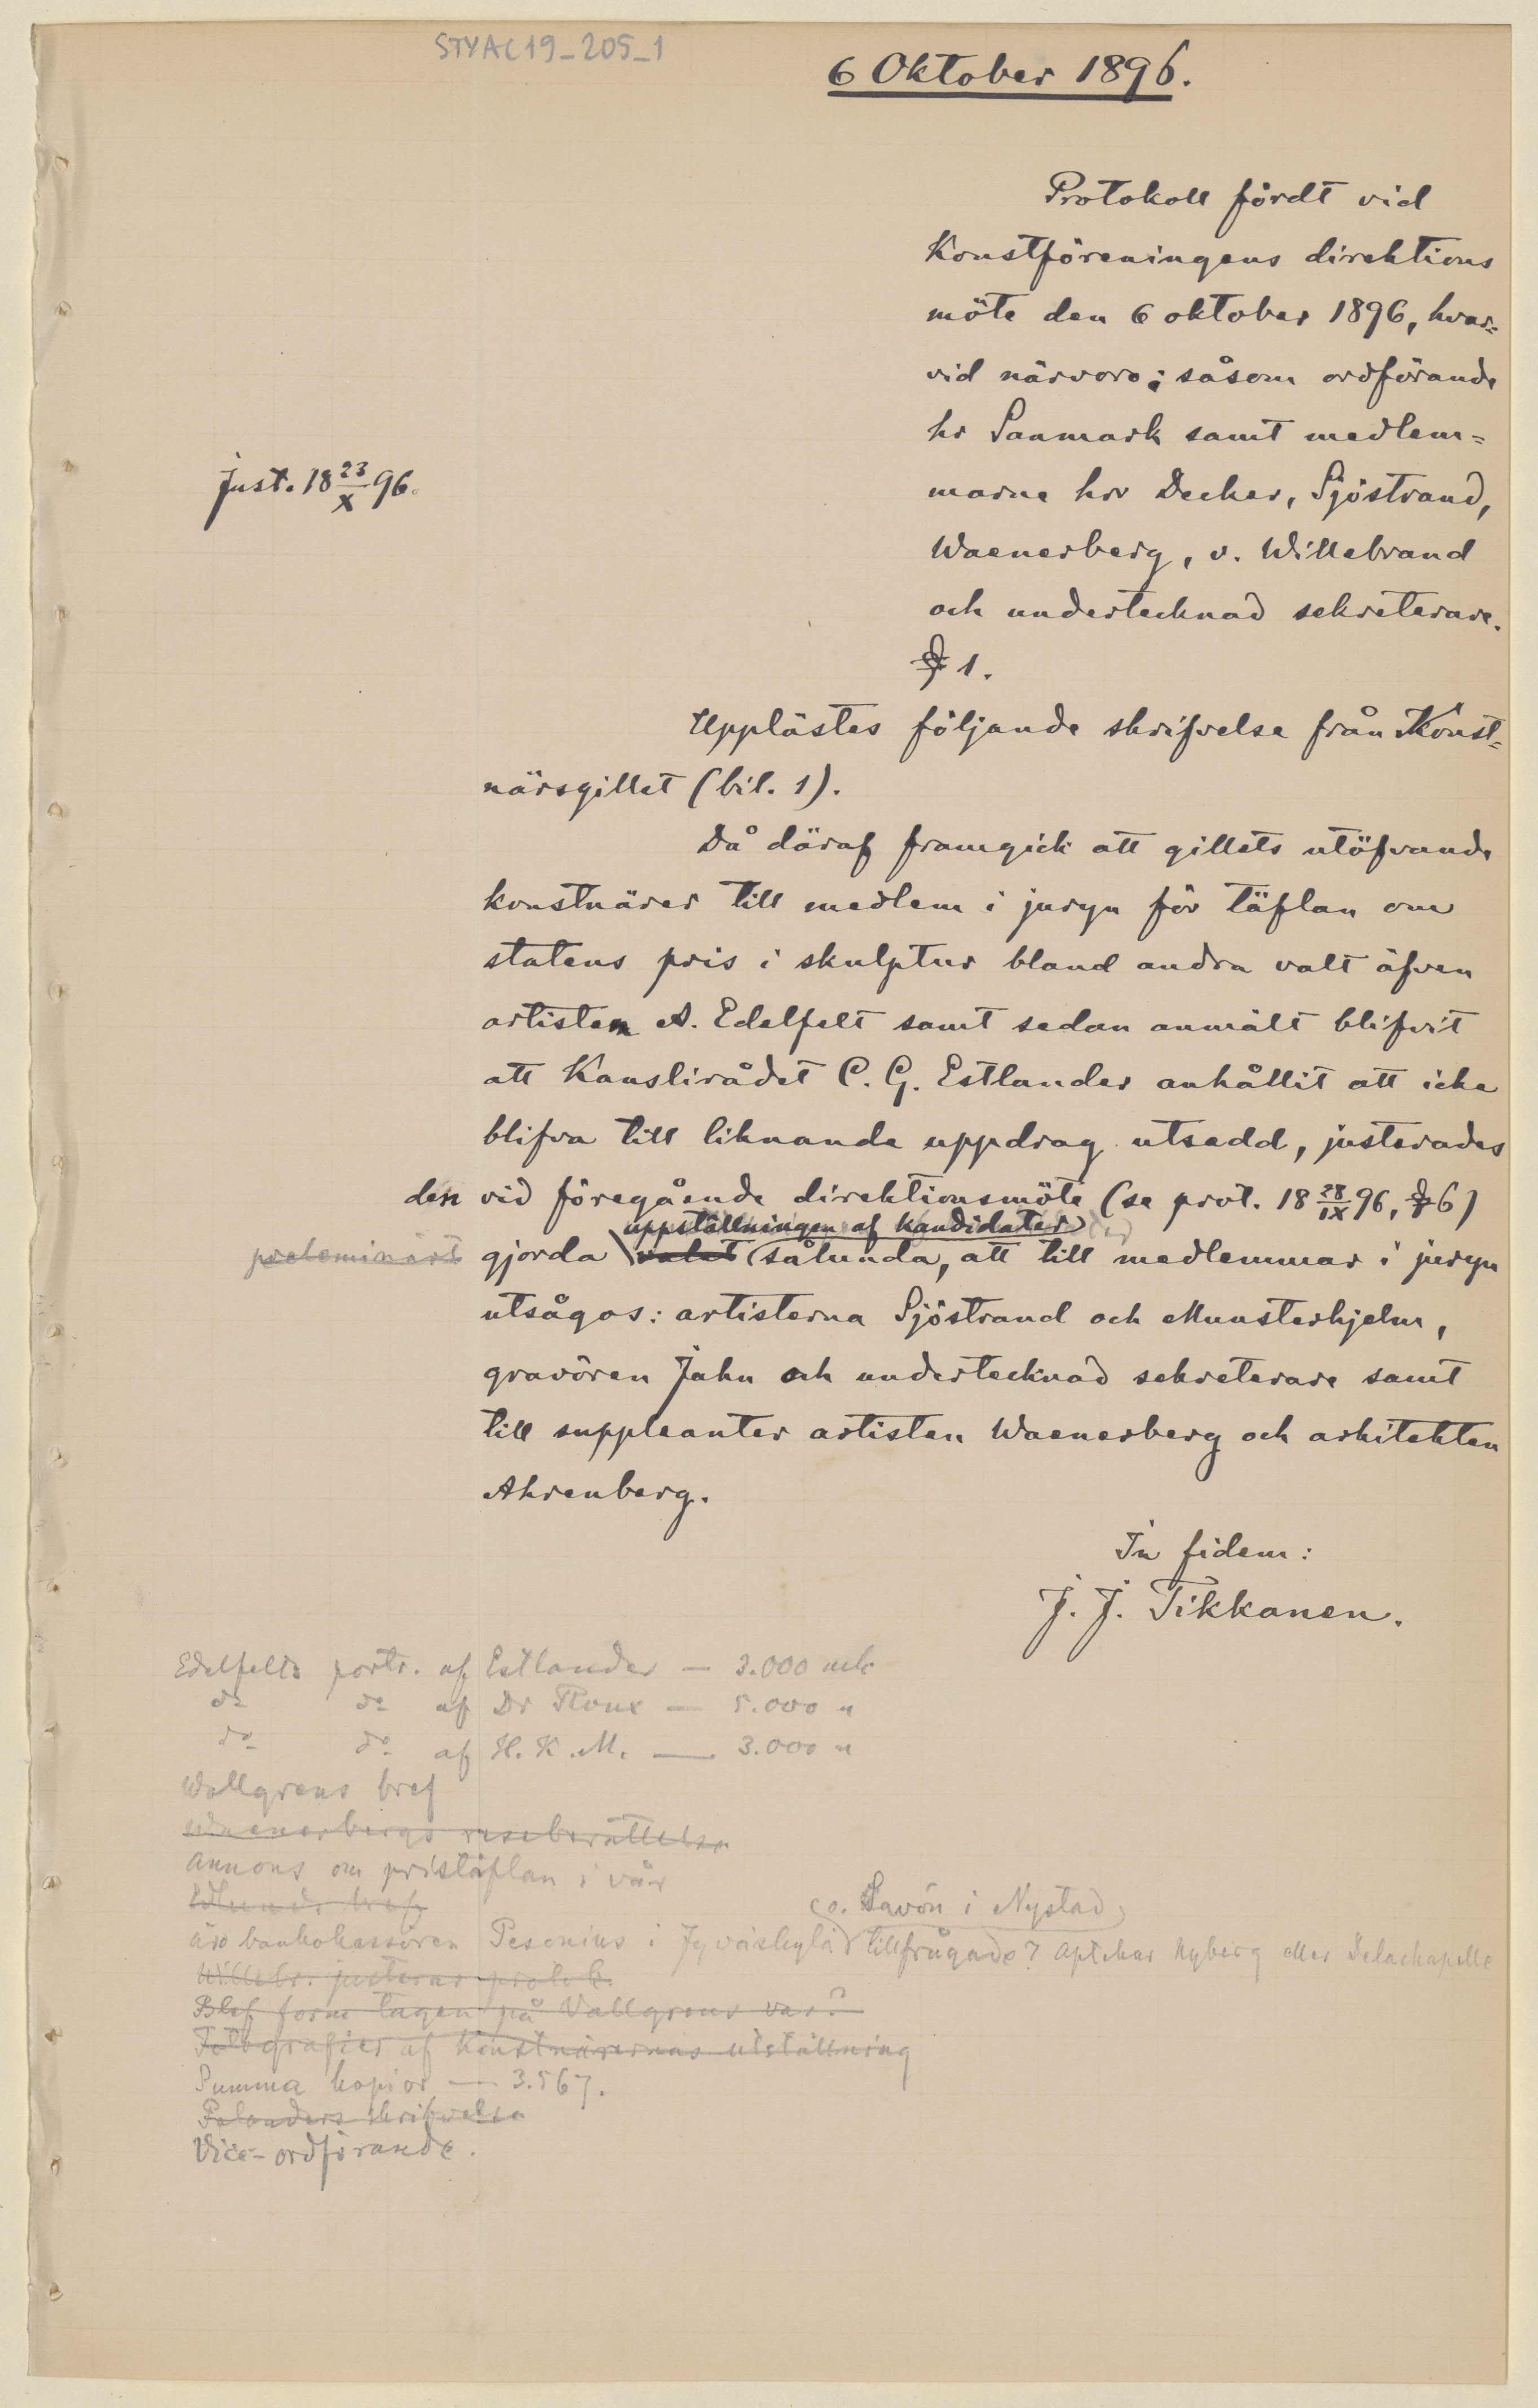 STYAC19_205_1
6 Oktober 1896.
Protokoll fördt vid
Konstföreningens direktions
möte den 6 oktober 1896, hvar=
vid närvoro; såsom ordförande
hr Sanmark samt medlem=
just. 18 23/X 96.
marne hrr Decker, Sjöstrand,
Waenerberg, v. Willebrand
och undertecknad sekreterare.
§ 1.
Upplästes följande skrifvelse från Konst=
närsgillet (bil. 1).
Då däraf framgick att gillets utöfvande
konstnärer till medlem i juryn för täflan om
statens pris i skulptur bland andra valt äfven
artisten A. Edelfelt samt sedan anmält blifvit
att Kanslirådet C. G. Estlander anhållit att icke
blifva till liknande uppdrag utsedd, justerades
den vid föregående direktionsmöte (se prot. 18 28/IX 96, § 6)
uppställningen af kandidater
preleminärt gjorda valet sålunda, att till medlemmar i juryn
utsågos: artisterna Sjöstrand och Munsterhjelm,
gravören Jahn och undertecknad sekreterare samt
till suppleanter artisten Waenerberg och arkitekten
Ahrenberg.
In fidem:
J. J. Tikkanen.
Edelfelts portr. af Estlander — 3.000 mk
do do af Dr Roux — 5.000 "
do do af H. K. M. — 3.000 "
Wallgrens bref
Waenerbergs reseberättelse
Annons om pristäflan i vår
Edlunds bref
o. Savón i Nystad
Äro bankokassören Pesonius i Jyväskylä tillfrågade? Aptekar Nyberg eller Delachapelle
Willebr. justerar protok.
Blef form tagen på Vallgrens vas?
Fotografier af Konstnärernas utställning
Summa kopior — 3.567.
Polanders skrifvelse
Vice-ordförande.